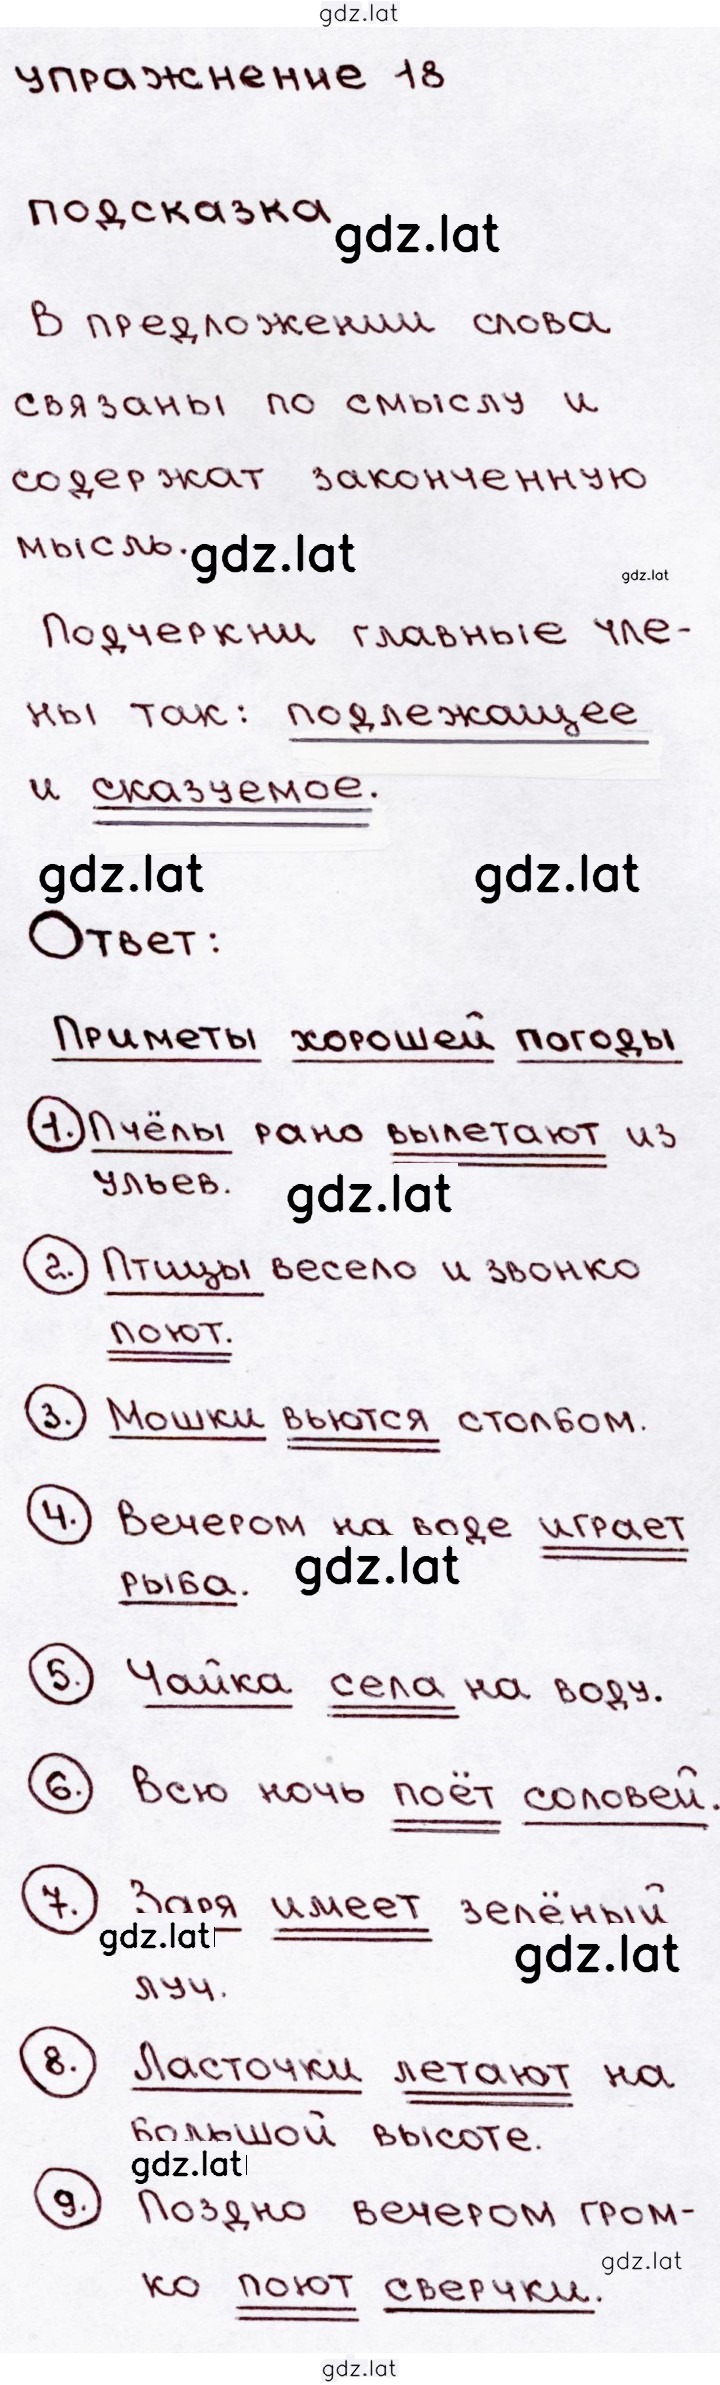 gdz.lat
упражнение 18
подсказка
gdz.lat
В предложении слова
связаны по смыслу и
содержат законченную
мысль.
gdz.lat
gdz.lat
Подчеркни главные чле-
ны так: подлежащее
и сказуемое.
gdz.lat gdz.lat
Ответ:
Приметы хорошей погоды
1. Пчёлы рано вылетают из
ульев.
gdz.lat
2. Птицы весело и звонко
поют.
3. Мошки вьются столбом.
4. Вечером на воде играет
рыба.
gdz.lat
5. Чайка села на воду.
6. Всю ночь поёт соловей.
7. Заря имеет зелёный
gdz.lat gdz.lat
луч.
8. Ласточки летают на
большой высоте.
gdz.lat
9. Поздно вечером гром-
gdz.lat
ко поют сверчки.
gdz.lat